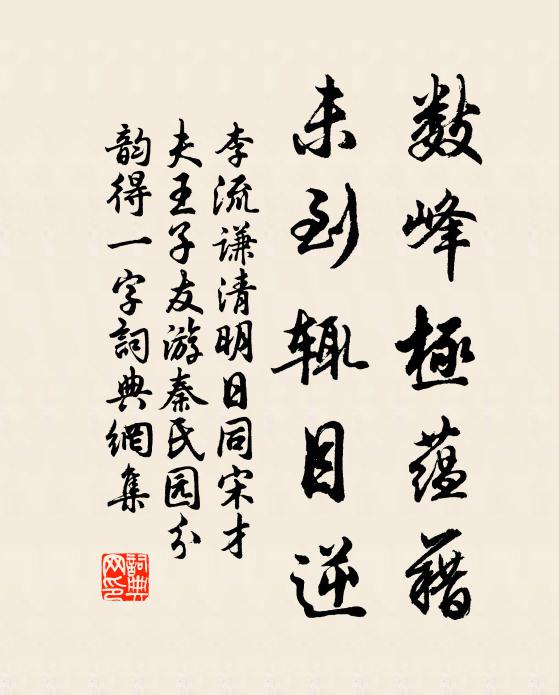 数峰極蕴藉
未到辄目逆
李流谦清明日同宋才
夫王子友游秦民园分
韵得一字詞典網集
詞典网印